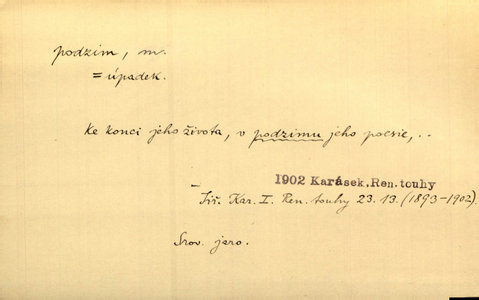 podzim, m.
= úpadek.
Ke konci jeho života, v podzimu jeho poesie, ..
1902 Karásek, Ren. touhy
Jiř. Kar. I. Ren. touhy 23. 13. (1893-1902).
Srov. jaro.